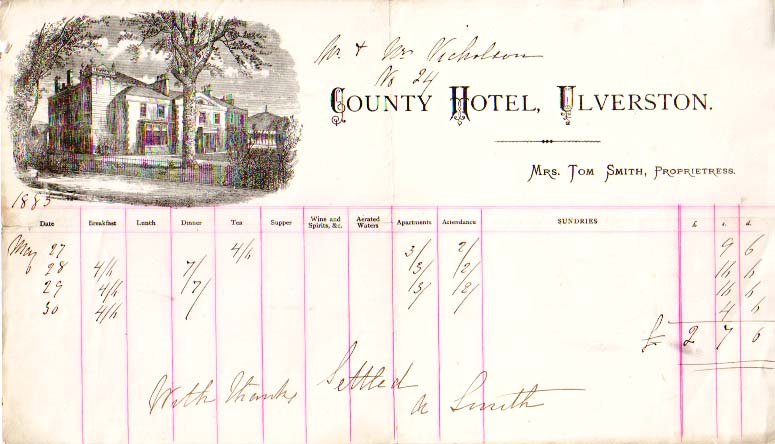 Mr. + Mrs Nicholson
No 24
COUNTY HOTEL, ULVERSTON.
MRS. TOM SMITH, PROPRIETRESS.
1883
Date Breakfast Lunch Dinner Tea Supper Wine and Spirits, &c. Aerated Waters Apartments Attendance SUNDRIES £ s. d.
May 27 4/6 3/ 2/ 9 6
28 4/6 7/ 3/ 2/ 16 6
29 4/6 7/ 3/ 2/ 16 6
30 4/6 4 6
£ 2 7
Settled
With thanks Smith